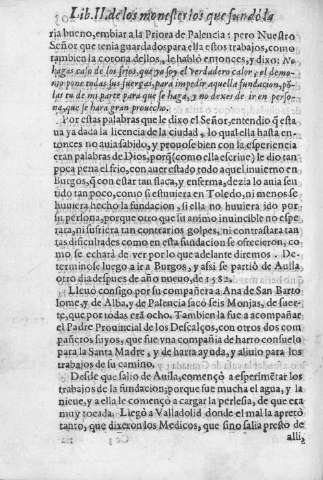 Lib. II. de los monesterios que fundò la
ria bueno, embiar a la Priora de Palencia: pero Nuestro
Señor que tenia guardados para ella estos trabajos, como
tambien la corona dellos, le habló entonces, y dixo: No
hagas caso de los frios, que yo soy el verdadero calor, y el demo-
nio pone todas sus fuerças, para impedir aquella fundacion, põ
las tu de mi parte para que se haga, y no dexes de ir en perso-
na, que se hara gran prouecho.
Por estas palabras que le dixo el Señor, entendio q̃ esta-
ua ya dada la licencia de la ciudad, lo qual ella hasta en-
tonces no auia sabido, y prouose bien con la esperiencia
eran palabras de Dios, porq̃ (como ella escriue) le dio tan
poca pena el frio, con auer estado todo aquel inuierno en
Burgos, q̃ con estar tan flaca, y enferma, dezia lo auia sen
tido tan poco, como si estuuiera en Toledo, ni menos se
huuiera hecho la fundacion, si ella no huuiera ido por
su persona, porque otro que su animo inuincible no espe-
rara, ni sufriera tan contrarios golpes, ni contrastara tan
tas dificultades como en esta fundacion se ofrecieron, co-
mo se echará de ver por lo que adelante diremos. De-
terminose luego a ir a Burgos, y assi se partiò de Auila
otro dia despues de año nueuo, de 1582.
Lleuó consigo por su compañera a Ana de San Barto
lome, y de Alba, y de Palencia sacó seis Monjas, de suer-
te, que por todas erã ocho. Tambien la fue a acompañar
el Padre Prouincial de los Descalços, con otros dos com
pañeros suyos, que fue vna compañia de harto consuelo
para la Santa Madre, y de harta ayuda, y aliuio para los
trabajos de su camino.
Desde que salio de Auila, començò a esperimẽtar los
trabajos de la fundacion, porque fue mucha el agua, y la
nieue, y a ella le començo a cargar la perlesia, de que era
muy tocada. Llegò a Valladolid donde el mal la apretò
tanto, que dixeron los Medicos, que sino salia presto de
alli,